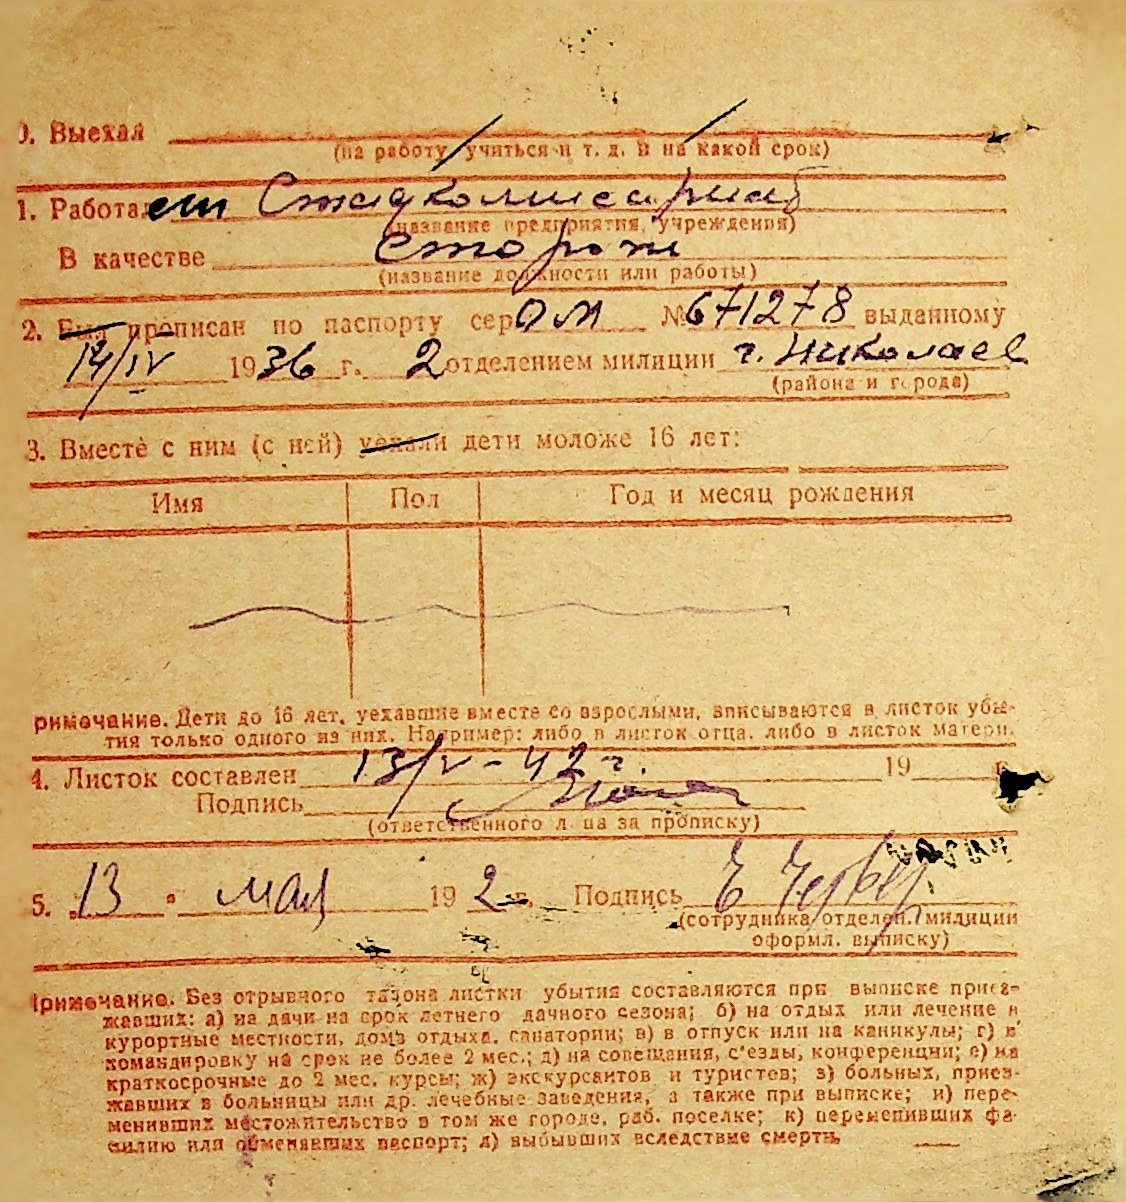 0. Выехал
(на работу, учиться и т. д. и на какой срок)
1. Работает
(название предприятия, учреждения)
В качестве Сторож
(название должности или работы)
2. Был прописан по паспорту сер ОМ № 671278 выданному
14/IV 1936 г. 2 отделением милиции г. Николаев
(района и города)
3. Вместе с ним (с ней) уехали дети моложе 16 лет:
Имя Пол Год и месяц рождения
римечание. Дети до 16 лет, уехавшие вместе со взрослыми, вписываются в листок убы-
тия только одного из них. Например: либо в листок отца, либо в листок матери.
4. Листок составлен 13/V - 42 г. 19 г.
Подпись
(ответственного лица за прописку)
5. 13 " мая 19 2 г. Подпись
(сотрудника отделен. милиции
оформл. выписку)
римечание. Без отрывного талона листки убытия составляются при выписке приез-
жавших: а) на дачи на срок летнего дачного сезона; б) на отдых или лечение в
курортные местности, дома отдыха, санатории; в) в отпуск или на каникулы; г) в
командировку на срок не более 2 мес.; д) на совещания, с'езды, конференции; е) на
краткосрочные до 2 мес. курсы; ж) экскурсантов и туристов; з) больных, приез-
жавших в больницы или др. лечебные заведения, а также при выписке; и) пере-
менивших местожительство в том же городе, раб. поселке; к) переменивших фа-
милию или обменявших паспорт; л) выбывших вследствие смерти.